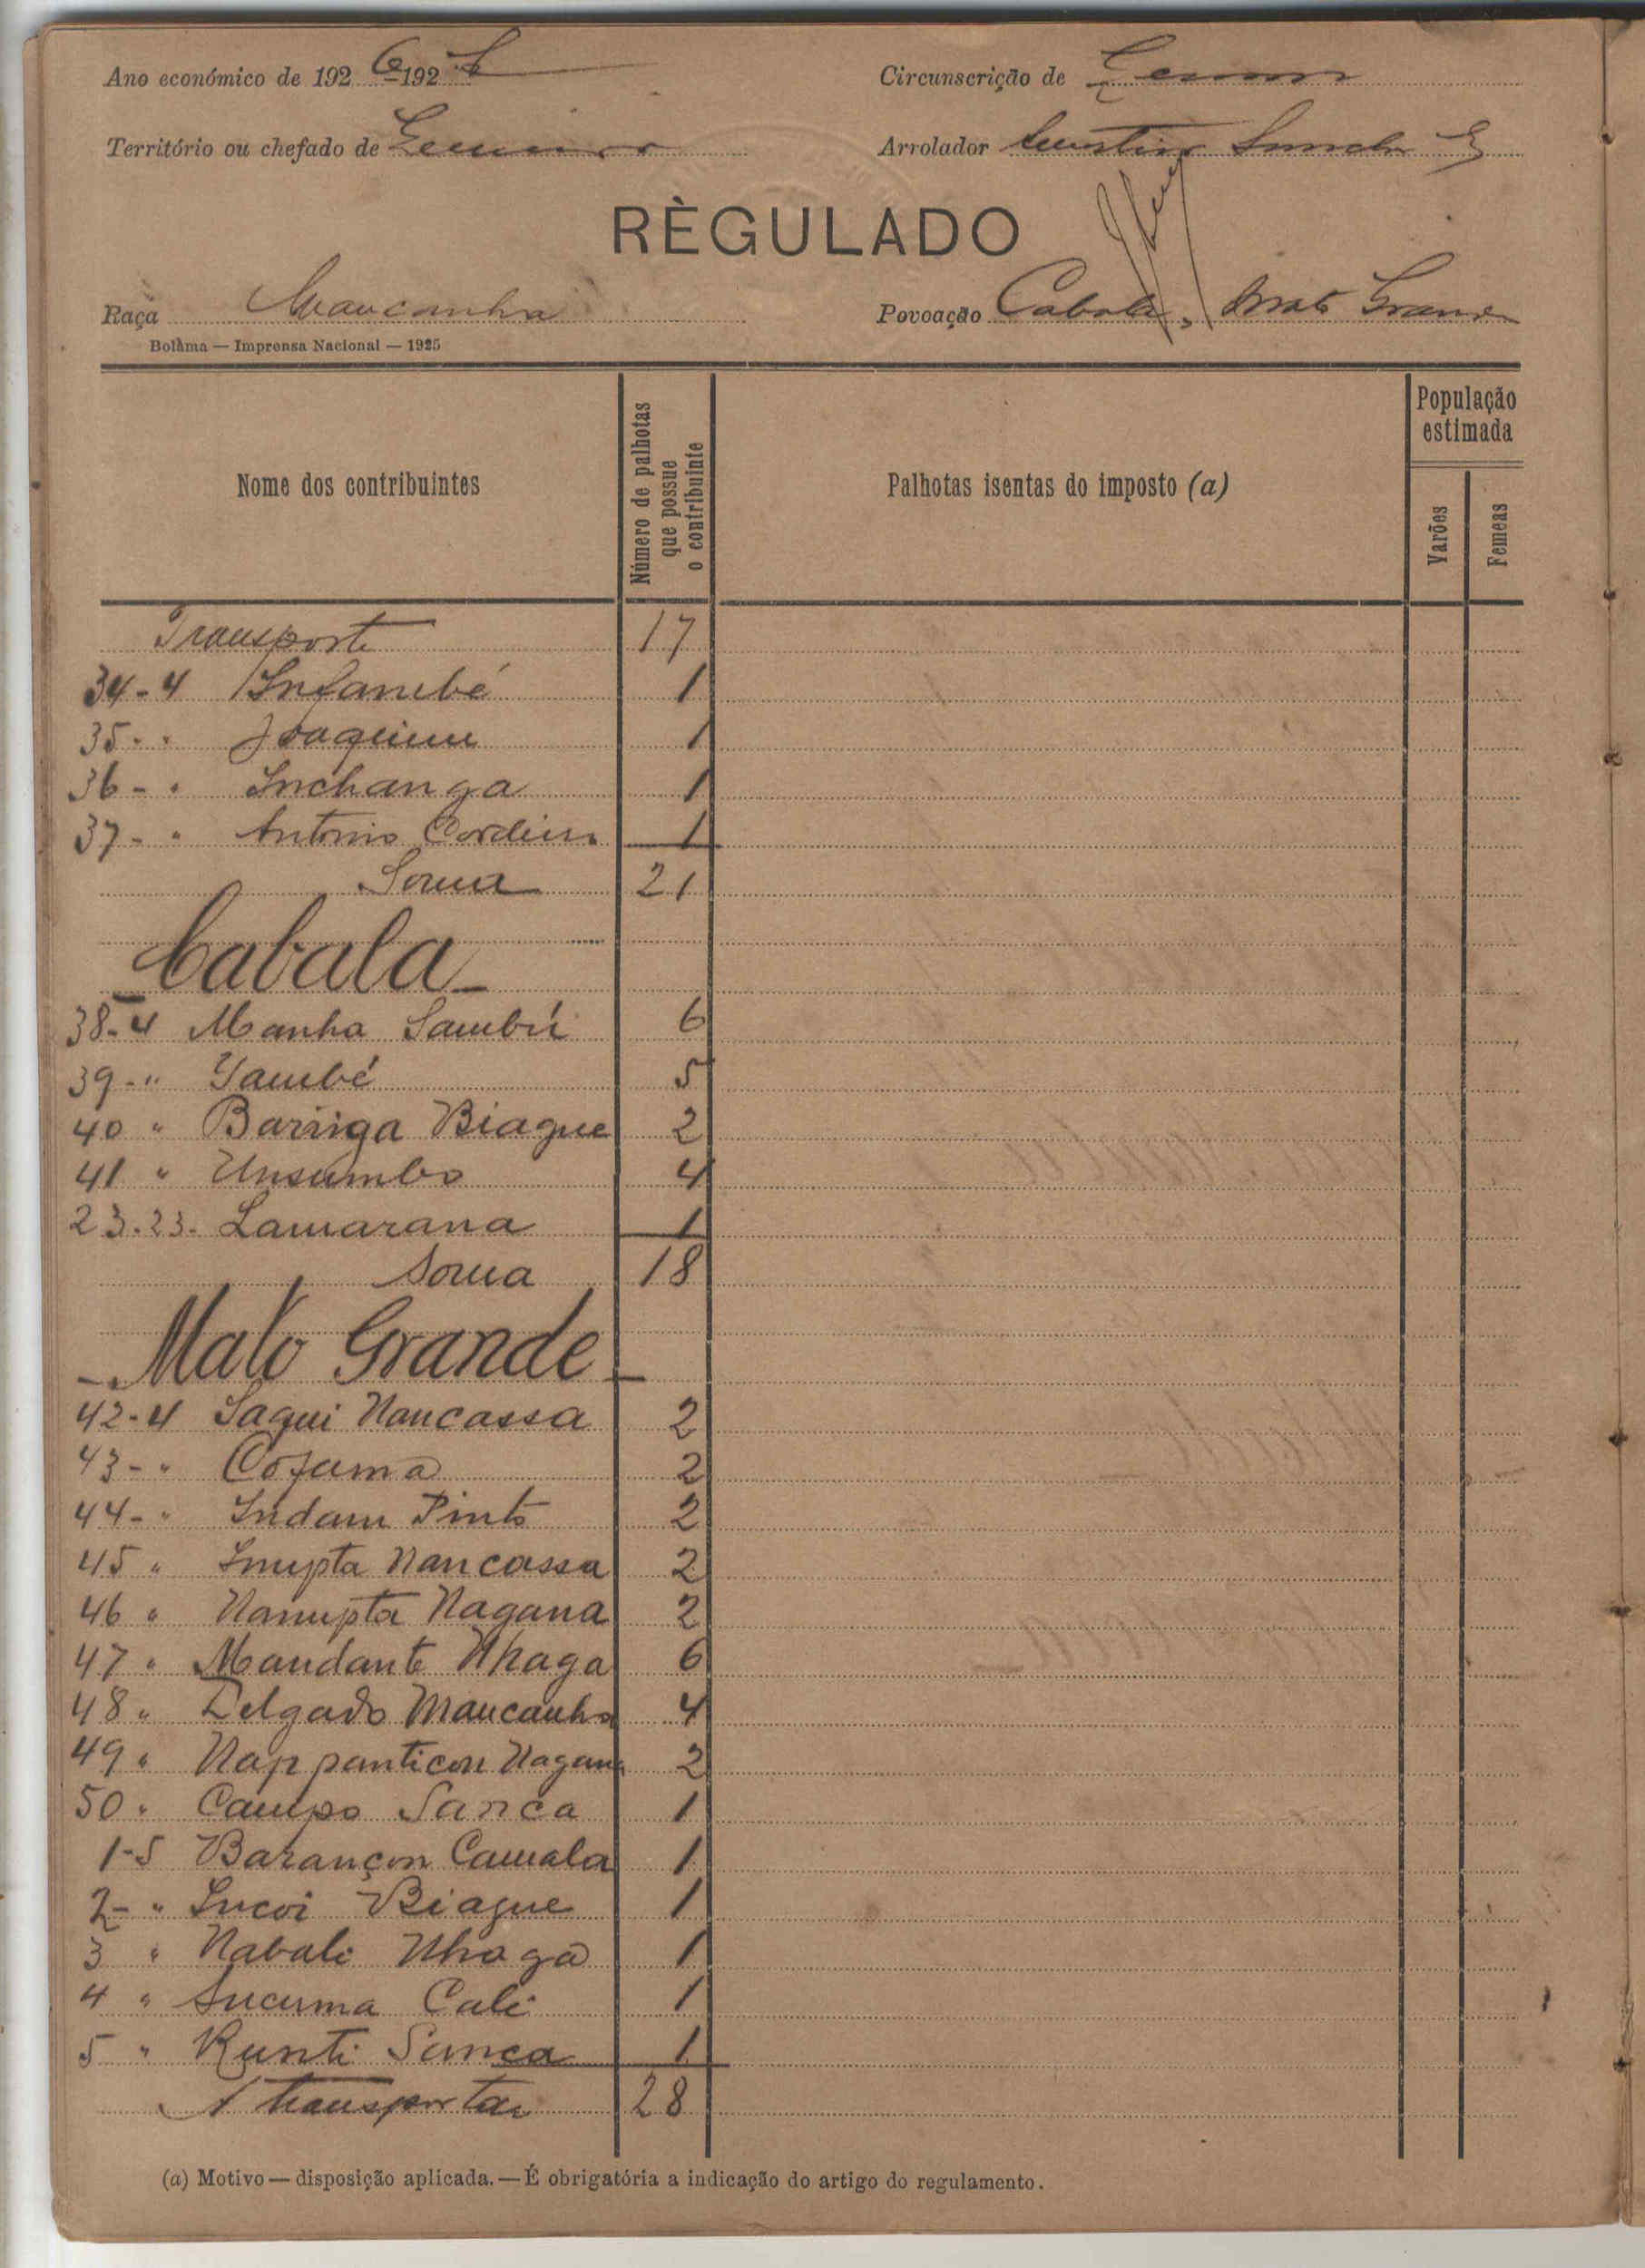 Ano económico de 1926-1927 Circunscrição de
Território ou chefado de Arrolador
RÈGULADO
Raça Mancanha Povoação Cabala, Mato Grande
Bolàma — Imprensa Nacional — 1925
Nome dos contribuintes Número de palhotas que possue o contribuinte Palhotas isentas do imposto (a) População estimada
Varões Femeas
Transporte 17
34-4 Infambé 1
35- " Joaquim 1
36- " Inchanga 1
37- " Antonio Cordeiro 1
Soma 21
Cabala
38-4 Manha Sambú 6
39- " Yambé 5
40 " Barriga Biague 2
41 " Unsumbo 4
23.23. Lamarana 1
Soma 18
Mato Grande
42-4 Sagui Nancassa 2
43- " Cofama 2
44- " Indam Pinto 2
45 " Inupta Nancassa 2
46 " Nanupta Nagana 2
47 " Mandante Nhaga 6
48 " Delgado Mancanha 4
49 " Nap panticon Nagana 2
50 " Campo Sanca 1
1-5 Barançon Camala 1
2- " Incoi Biague 1
3 " Nabali Nhaga 1
4 " Sucuma Cali 1
5 " Runti Sanca 1
A transportar 28
(a) Motivo — disposição aplicada. — É obrigatória a indicação do artigo do regulamento.